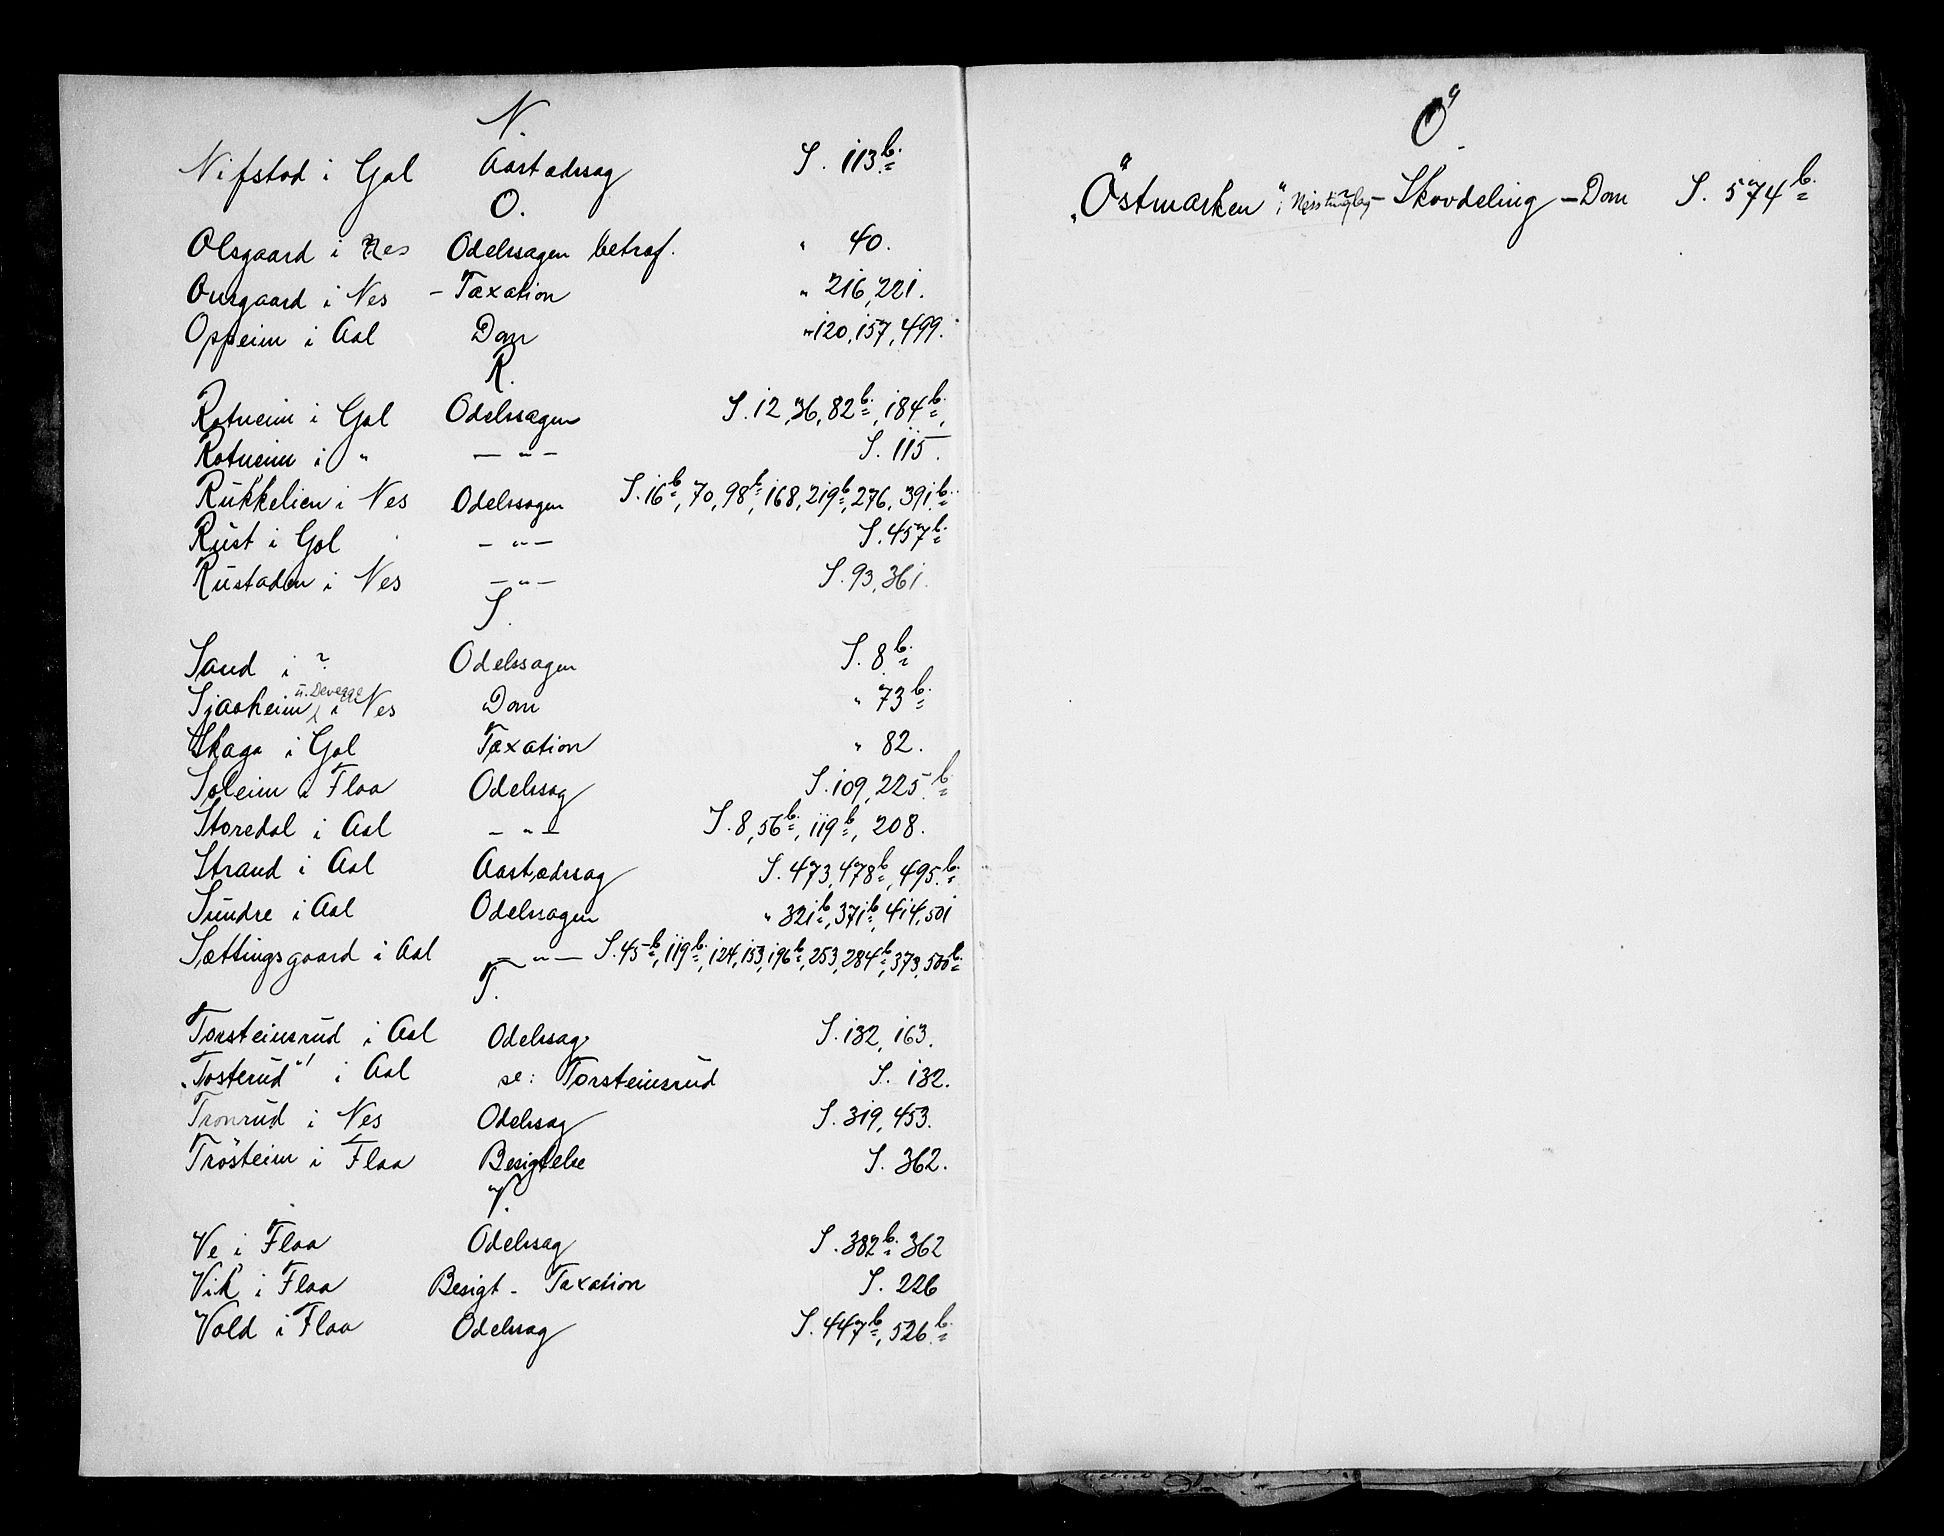 N.
Nifstad i Gol Aastædssag S. 113b.
O.
Olsgaard i Nes Odelssagen betræf. " 40.
Ousgaard i Nes - Taxation " 216, 221.
Oppeim i Aal Dom " 120, 157, 499.
R.
Rotneim i Gol Odelssagen S. 12, 36, 82b., 184b.,
Rotneim i " — " — S. 115.
Rŭkkelien i Nes Odelssagen S. 16b, 70, 98b, 168, 219b, 276, 391b.
Rŭst i Gol — " — S. 457b.
Rŭstaden i Nes — " — S. 93, 361.
S.
Sand i ? Odelssagen S. 8b.
ŭ. Devegge
Sjaaheim i Nes Dom " 73b.
Skaga i Gol Taxation " 82.
Soleim i Flaa Odelssag S. 109, 225.b
Storedal i Aal — " — S. 8, 56b., 119b, 208.
Strand i Aal Aastædssag S. 473, 478b, 495.b.
Sŭndre i Aal Odelssagen " 321b, 371b, 414, 501
Sættingsgaard i Aal — " — S. 45b, 119b., 124, 153, 196b, 253, 284b, 373, 500b.
T.
Torsteinsrŭd i Aal Odelssag S. 132, 163.
"Tosterŭd" i Aal se: Torsteinsrŭd S. 132.
Tronrŭd i Nes Odelssag S. 319, 453.
Trösteim i Flaa Besigtelse S. 362.
V.
Ve i Flaa Odelssag S. 382b. 362
Vik i Flaa Besigt - Taxation S. 226
Vold i Flaa Odelssag S. 447b, 526b.
Ö.
"Östmarken", i - Skovdeling - Dom S. 574b.